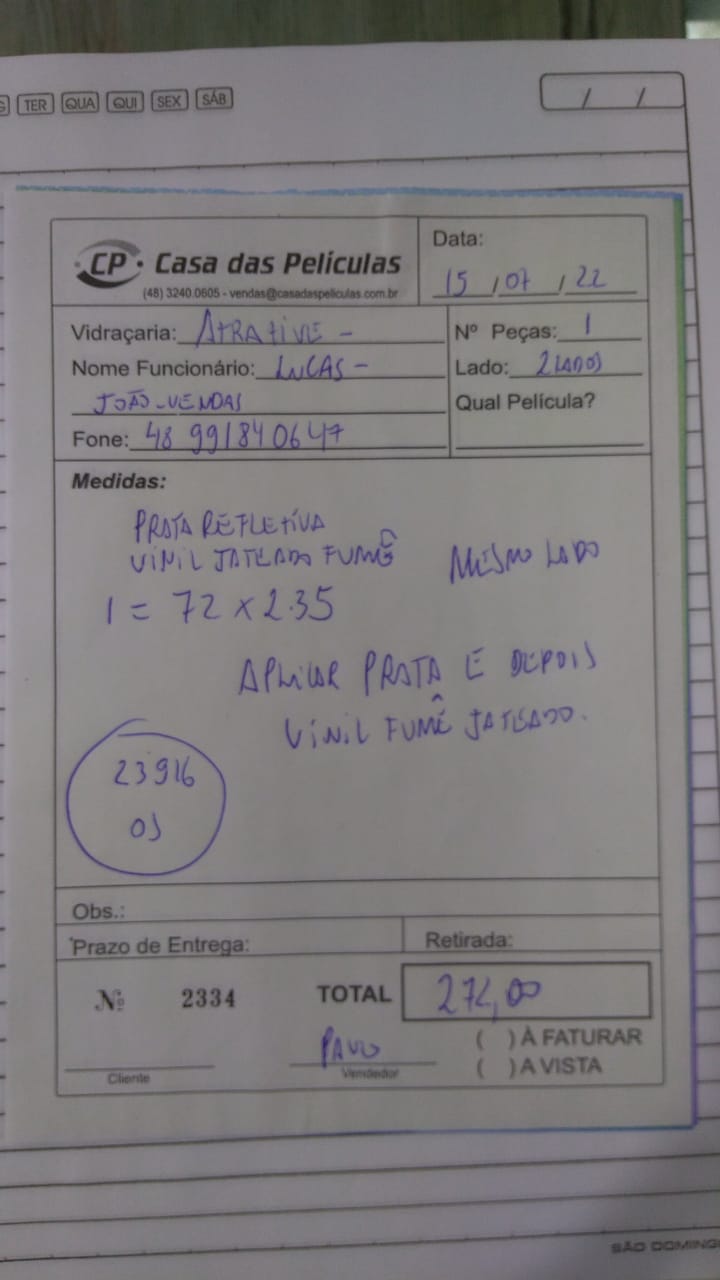 TER QUA QUI SEX SÁB
/ /
CP Casa das Películas
(48) 3240.0605 - vendas@casadaspeliculas.com.br
Data:
15 / 07 / 22
Vidraçaria: ATRATIVE -
Nome Funcionário: LUCAS -
JOÃO - VENDAS
Fone: 48 991840647
Nº Peças: 1
Lado: 2 LADOS
Qual Película?
Medidas:
PRATA REFLETIVA
VINIL JATEADO FUMÊ
MESMO LADO
1 = 72 x 2.35
APLICAR PRATA E DEPOIS
VINIL FUMÊ JATEADO.
23916
OS
Obs.:
Prazo de Entrega:
Retirada:
Nº 2334
TOTAL
,00
PAULO
Cliente
Vendedor
( ) À FATURAR
( ) A VISTA
SÃO DOMING